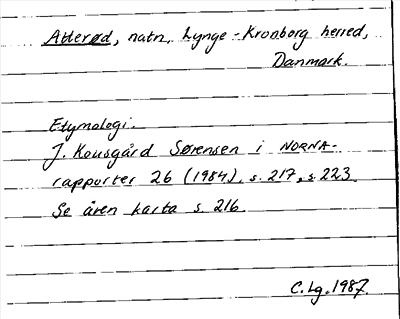 Atterød, natn, Lynge-Kronborg herred,
Danmark.
Etymologi.
J. Kousgård Sørensen i NORNA-
rapporter 26 (1984), s. 217, s. 223
Se även karta s. 216.
C. Lg. 1987.